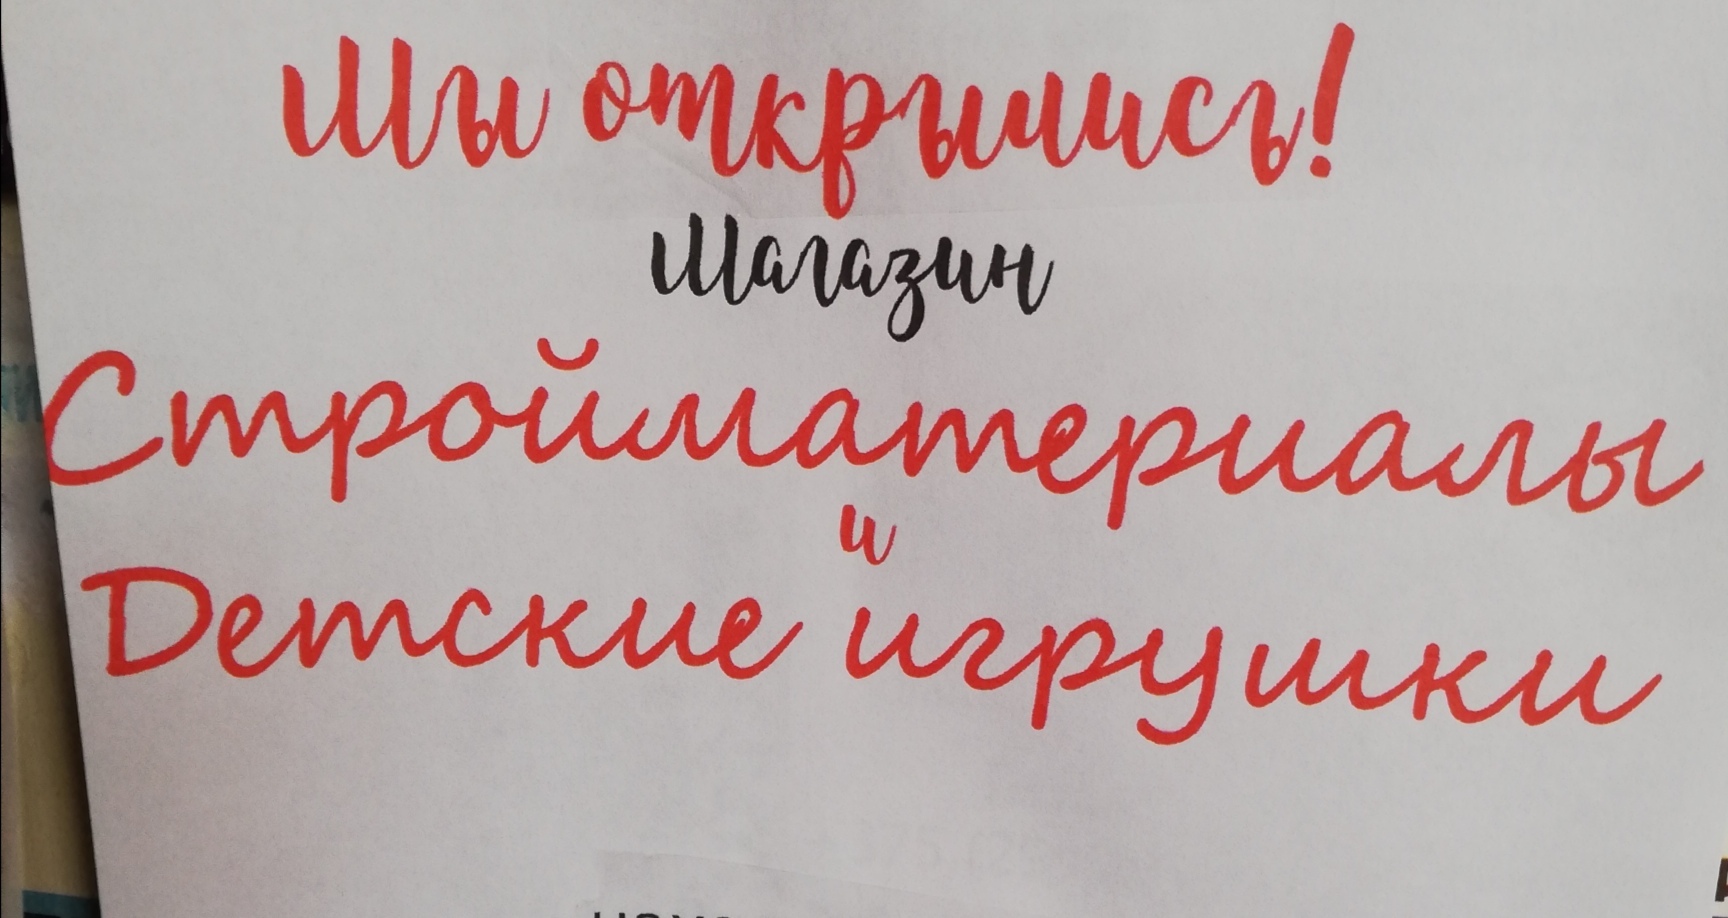 Мы открылись!
Магазин
Стройматериалы
и
Детские игрушки